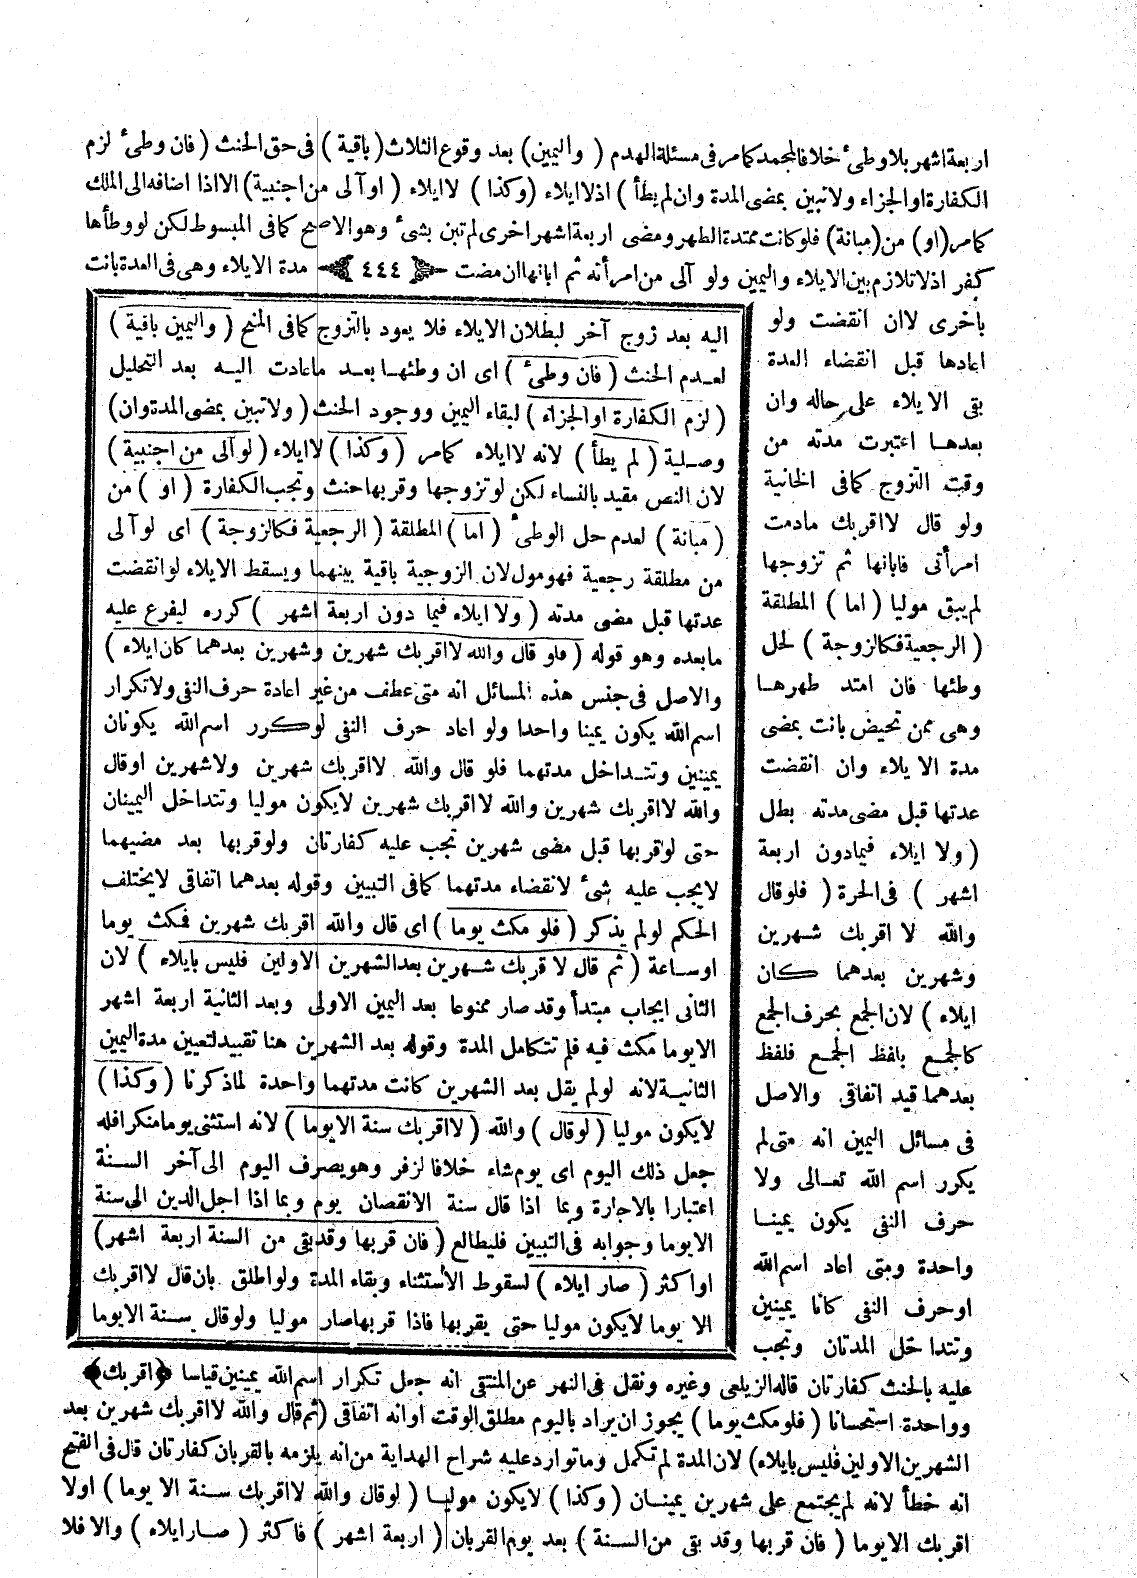 اربعة اشهر بلا وطئ خلافا لمحمد كما مر فى مسئلة الهدم ( واليمين ) بعد وقوع الثلاث ( باقية ) فى حق الحنث ( فان وطئ لزم
الكفارة او الجزاء ولا تبين بمضى المدة وان لم يطأ ) اذ لا ايلاء ( وكذا ) لا ايلاء ( او آلى من اجنبية ) الا اذا اضافه الى الملك
كما مر ( او ) من ( مبانة ) فلو كانت ممتدة الطهر ومضى اربعة اشهر اخرى لم تبن بشئ وهو الاصح كما فى المبسوط لكن لو وطأها
كفر اذ لا تلازم بين الايلاء واليمين ولو آلى من امرأته ثم ابانها ان مضت ﴿ ٤٤٤ ﴾ مدة الايلاء وهى فى العدة بانت
باخرى لا ان انقضت ولو
اعادها قبل انقضاء العدة
بقى الايلاء على حاله وان
بعدها اعتبرت مدته من
وقت التزوج كما فى الخانية
ولو قال لا اقربك مادمت
امرأتى فابانها ثم تزوجها
لم يبق موليا ( اما ) المطلقة
( الرجعية فكالزوجة ) لحل
وطئها فان امتد طهرها
وهى ممن تحيض بانت بمضى
مدة الايلاء وان انقضت
عدتها قبل مضى مدته بطل
( ولا ايلاء فيما دون اربعة
اشهر ) فى الحرة ( فلو قال
والله لا اقربك شهرين
وشهرين بعدهما كان
ايلاء ) لان الجمع بحرف الجمع
كالجمع بلفظ الجمع فلفظ
بعدهما قيد اتفاقى والاصل
فى مسائل اليمين انه متى لم
يكرر اسم الله تعالى ولا
حرف النفى يكون يمينا
واحدة ومتى اعاد اسم الله
او حرف النفى كانا يمينين
وتتداخل المدتان وتجب
عليه بالحنث كفارتان قاله الزيلعى وغيره ونقل فى النهر عن المنتقى انه جعل تكرار اسم الله يمينين قياسا ﴿ اقربك ﴾
وواحدة استحسانا ( فلو مكث يوما ) يجوز ان يراد باليوم مطلق الوقت او انه اتفاقى ( ثم قال والله لا اقربك شهرين بعد
الشهرين الاولين فليس بايلاء ) لان المدة لم تكمل وما توارد عليه شراح الهداية من انه يلزمه بالقربان كفارتان قال فى الفتح
انه خطأ لانه لم يجتمع على شهرين يمينان ( وكذا ) لا يكون موليا ( لو قال والله لا اقربك سنة الا يوما ) او لا
اقربك الا يوما ( فان قربها وقد بقى من السنة ) بعد يوم القربان ( اربعة اشهر ) فاكثر ( صار ايلاء ) والا فلا
اليه بعد زوج آخر لبطلان الايلاء فلا يعود بالتزوج كما فى المنح ( واليمين باقية )
لعدم الحنث ( فان وطئ ) اى ان وطئها بعد ما عادت اليه بعد التحليل
( لزم الكفارة او الجزاء ) لبقاء اليمين ووجود الحنث ( ولا تبين بمضى المدة وان )
وصلية ( لم يطأ ) لانه لا ايلاء كما مر ( وكذا ) لا ايلاء ( لو آلى من اجنبية )
لان النص مقيد بالنساء لكن لو تزوجها وقربها حنث وتجب الكفارة ( او ) من
( مبانة ) لعدم حل الوطئ ( اما ) المطلقة ( الرجعية فكالزوجة ) اى لو آلى
من مطلقة رجعية فهو مول لان الزوجية باقية بينهما ويسقط الايلاء لو انقضت
عدتها قبل مضى مدته ( ولا ايلاء فيما دون اربعة اشهر ) كرره ليفرع عليه
ما بعده وهو قوله ( فلو قال والله لا اقربك شهرين وشهرين بعدهما كان ايلاء )
والاصل فى جنس هذه المسائل انه متى عطف من غير اعادة حرف النفى ولا تكرار
اسم الله يكون يمينا واحدا ولو اعاد حرف النفى لو كرر اسم الله يكونان
يمينين وتتداخل مدتهما فلو قال والله لا اقربك شهرين ولا شهرين او قال
والله لا اقربك شهرين والله لا اقربك شهرين لا يكون موليا وتتداخل اليمينان
حتى لو قربها قبل مضى شهرين تجب عليه كفارتان ولو قربها بعد مضيهما
لا يجب عليه شئ لانقضاء مدتهما كما فى التبيين وقوله بعدهما اتفاقى لا يختلف
الحكم لو لم يذكر ( فلو مكث يوما ) اى قال والله اقربك شهرين فمكث يوما
او ساعة ( ثم قال لا قربك شهرين بعد الشهرين الاولين فليس بايلاء ) لان
الثانى ايجاب مبتدأ وقد صار ممنوعا بعد اليمين الاولى وبعد الثانية اربعة اشهر
الا يوما مكث فيه فلم تتكامل المدة وقوله بعد الشهرين هنا تقييد لتعيين مدة اليمين
الثانية لانه لو لم يقل بعد الشهرين كانت مدتهما واحدة لما ذكرنا ( وكذا )
لا يكون موليا ( لو قال ) والله ( لا اقربك سنة الا يوما ) لانه استثنى يوما منكرا فله
جعل ذلك اليوم اى يوم شاء خلافا لزفر وهو يصرف اليوم الى آخر السنة
اعتبارا بالاجارة وبما اذا قال سنة الا نقصان يوم وبما اذا اجل الدين الى سنة
الا يوما وجوابه فى التبيين فليطالع ( فان قربها وقد بقى من السنة اربعة اشهر )
او اكثر ( صار ايلاء ) لسقوط الاستثناء وبقاء المدة ولو اطلق بان قال لا اقربك
الا يوما لا يكون موليا حتى يقربها فاذا قربها صار موليا ولو قال سنة الا يوما